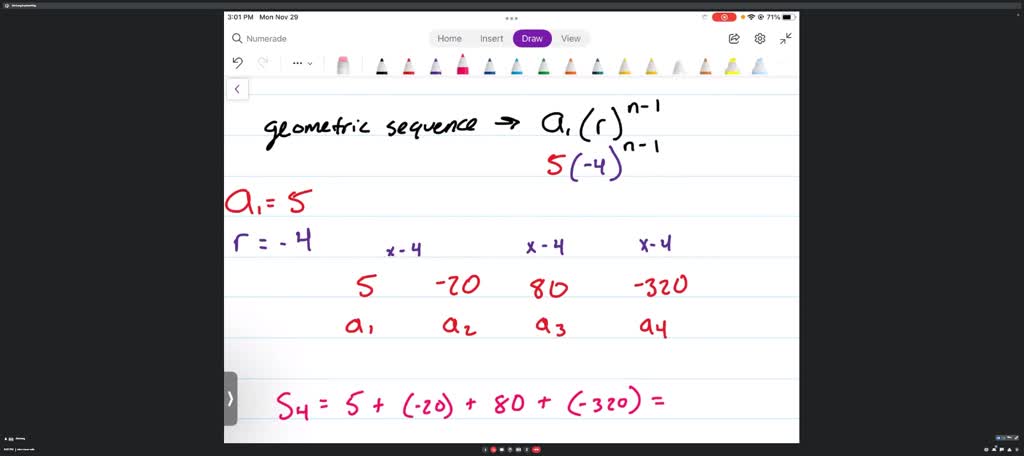 3:01 PM Mon Nov 29
71%
Numerade
Home Insert Draw View
geometric sequence → a₁(r)ⁿ⁻¹
5(-4)ⁿ⁻¹
a₁ = 5
r = -4
x-4 x-4 x-4
5 -20 80 -320
a₁ a₂ a₃ a₄
S₄ = 5 + (-20) + 80 + (-320) =